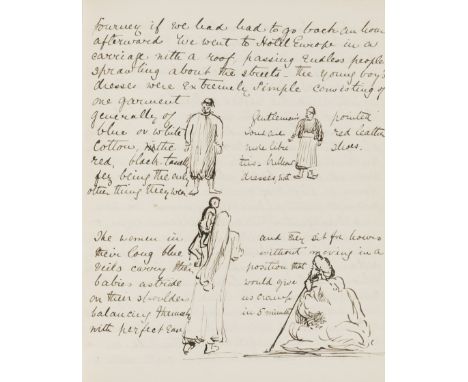 Journey if we had had to go back an hour
afterward We went to Hotel Europe in a
carriage with a roof, passing Endless people
sprawling about the streets - the young boy's
dresses were Extremely Simple consisting of
one garment
generally of
blue or white
cotton, with a
red, black-tasselled
fez being the only
other thing they wear
Gentlemen's
some are
more like
this - yellow
dresses, with
pointed
red leather
shoes.
The women in
their long blue
veils carry their
babies astride
on their shoulders
balancing themselves
with perfect Ease
and they sit for hours
without moving in a
position that
would give
us cramp
in 5 minutes